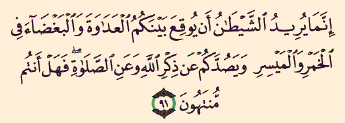 إِنَّمَا يُرِيدُ ٱلشَّيْطَٰنُ أَن يُوقِعَ بَيْنَكُمُ ٱلْعَدَٰوَةَ وَٱلْبَغْضَآءَ فِى
ٱلْخَمْرِ وَٱلْمَيْسِرِ وَيَصُدَّكُمْ عَن ذِكْرِ ٱللَّهِ وَعَنِ ٱلصَّلَوٰةِ ۖ فَهَلْ أَنتُم
مُّنتَهُونَ ٩١